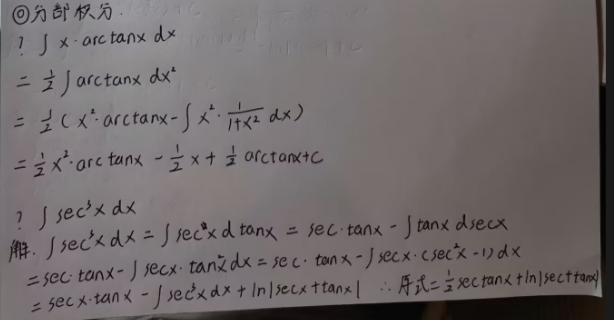 ◎分部积分.
? ∫ x·arctanx dx
= 1/2 ∫ arctanx dx²
= 1/2 ( x²·arctanx - ∫ x²· 1/(1+x²) dx )
= 1/2 x²·arc tanx - 1/2 x + 1/2 arctanx+C
? ∫ sec³x dx
解. ∫ sec³x dx = ∫ secx d tanx = sec·tanx - ∫ tanx dsecx
= sec·tanx - ∫ secx·tan²x dx = sec·tanx - ∫ secx·(sec²x-1) dx
= secx·tanx - ∫ sec³x dx + ln|secx+tanx| ∴原式= 1/2 sectanx + ln|sec+tanx|